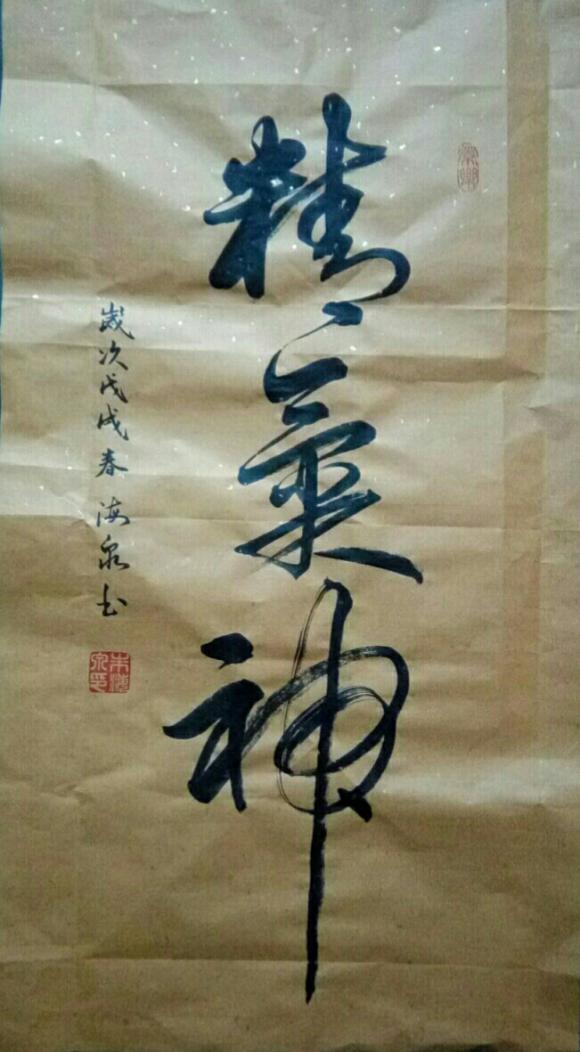 精氣神
歲次戊戌春海泉书